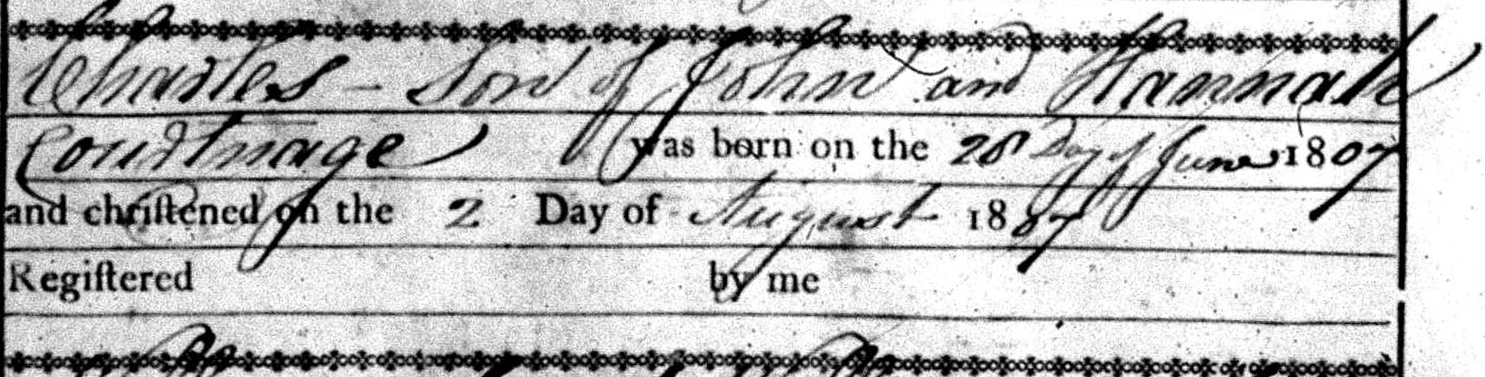 Charles - Son of John and Hannah
Courtnage was born on the 28 Day of June 1807
and chriſtened on the 2 Day of August 1807
Regiſtered by me